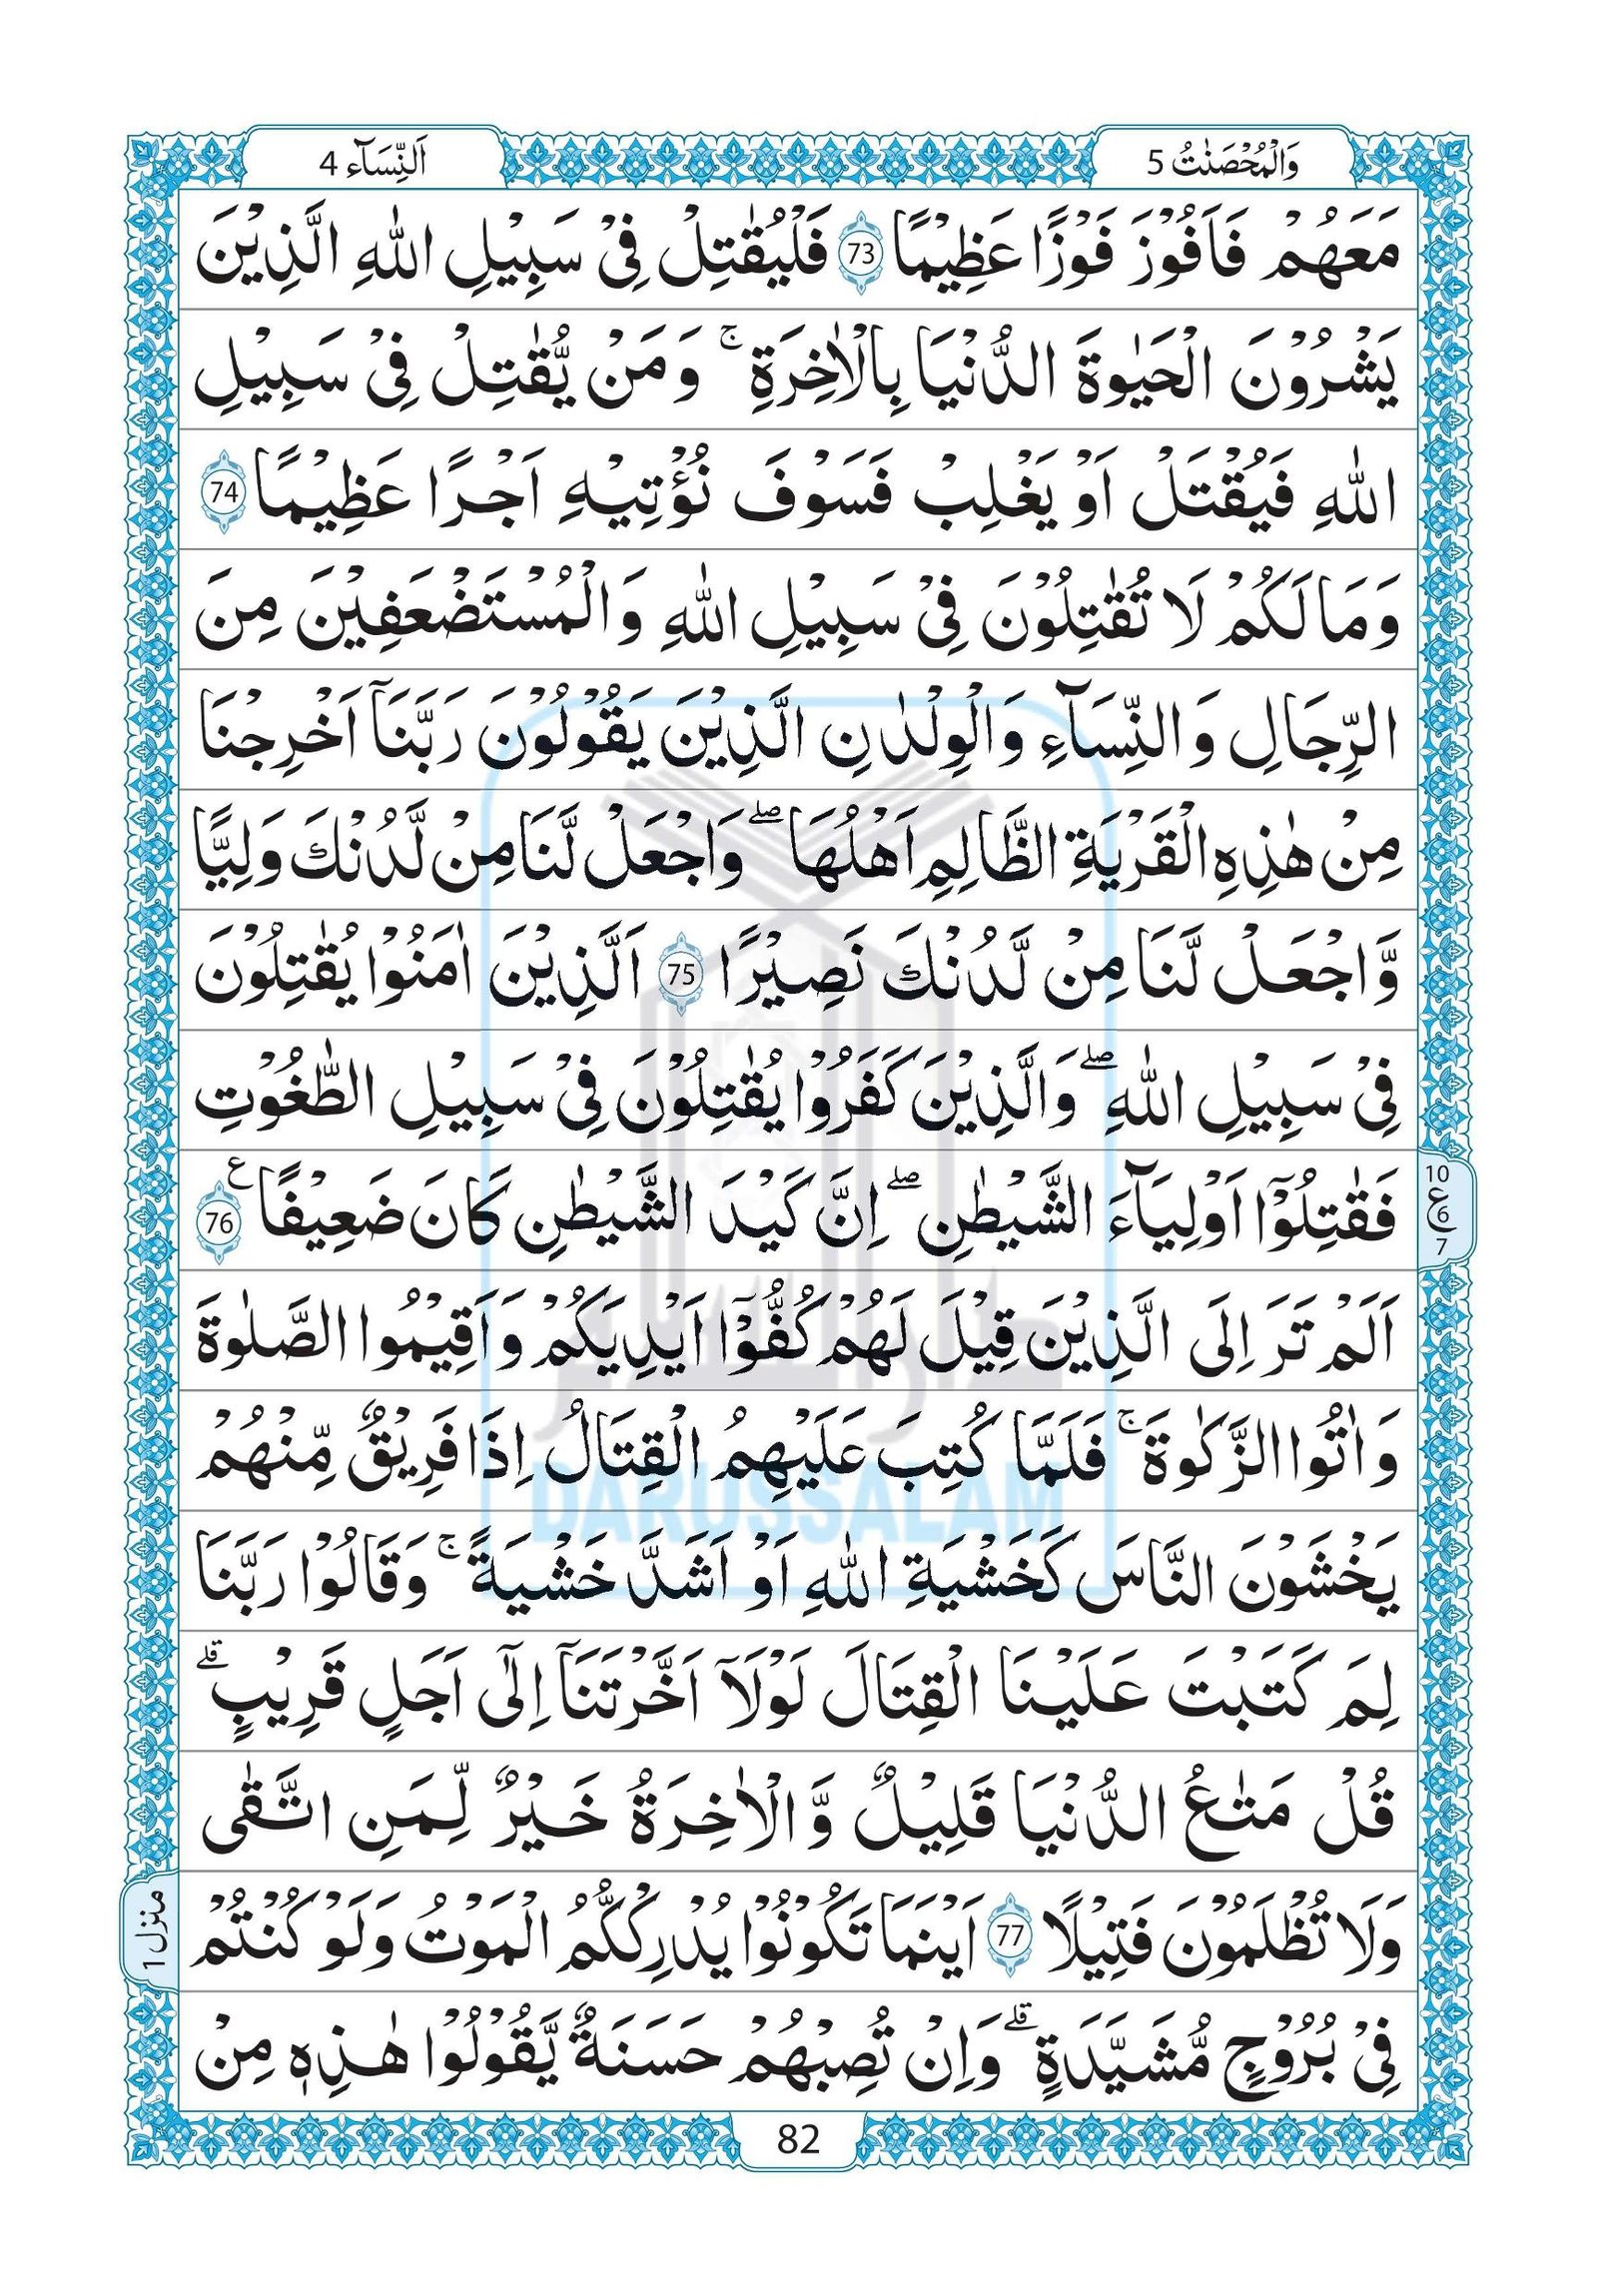 وَالْمُحْصَنٰتُ 5
اَلنِّسَآء 4
مَعَهُمْ فَاَفُوْزَ فَوْزًا عَظِيْمًا 73 فَلْيُقَاتِلْ فِيْ سَبِيْلِ اللّٰهِ الَّذِيْنَ
يَشْرُوْنَ الْحَيٰوةَ الدُّنْيَا بِالْاٰخِرَةِ ۚ وَمَنْ يُّقَاتِلْ فِيْ سَبِيْلِ
اللّٰهِ فَيُقْتَلْ اَوْ يَغْلِبْ فَسَوْفَ نُؤْتِيْهِ اَجْرًا عَظِيْمًا 74
وَمَا لَكُمْ لَا تُقَاتِلُوْنَ فِيْ سَبِيْلِ اللّٰهِ وَالْمُسْتَضْعَفِيْنَ مِنَ
الرِّجَالِ وَالنِّسَآءِ وَالْوِلْدٰنِ الَّذِيْنَ يَقُوْلُوْنَ رَبَّنَآ اَخْرِجْنَا
مِنْ هٰذِهِ الْقَرْيَةِ الظَّالِمِ اَهْلُهَا ۖ وَاجْعَلْ لَّنَا مِنْ لَّدُنْكَ وَلِيًّا
وَّاجْعَلْ لَّنَا مِنْ لَّدُنْكَ نَصِيْرًا 75 اَلَّذِيْنَ اٰمَنُوْا يُقَاتِلُوْنَ
فِيْ سَبِيْلِ اللّٰهِ ۖ وَالَّذِيْنَ كَفَرُوْا يُقَاتِلُوْنَ فِيْ سَبِيْلِ الطّٰغُوْتِ
فَقَاتِلُوْٓا اَوْلِيَآءَ الشَّيْطٰنِ ۖ اِنَّ كَيْدَ الشَّيْطٰنِ كَانَ ضَعِيْفًا ع 76
10 ع 6 7
اَلَمْ تَرَ اِلَى الَّذِيْنَ قِيْلَ لَهُمْ كُفُّوْٓا اَيْدِيَكُمْ وَاَقِيْمُوا الصَّلٰوةَ
وَاٰتُوا الزَّكٰوةَ ۚ فَلَمَّا كُتِبَ عَلَيْهِمُ الْقِتَالُ اِذَا فَرِيْقٌ مِّنْهُمْ
يَخْشَوْنَ النَّاسَ كَخَشْيَةِ اللّٰهِ اَوْ اَشَدَّ خَشْيَةً ۚ وَقَالُوْا رَبَّنَا
لِمَ كَتَبْتَ عَلَيْنَا الْقِتَالَ لَوْلَآ اَخَّرْتَنَآ اِلٰٓى اَجَلٍ قَرِيْبٍ ۗ
قُلْ مَتَاعُ الدُّنْيَا قَلِيْلٌ وَّالْاٰخِرَةُ خَيْرٌ لِّمَنِ اتَّقٰى
وَلَا تُظْلَمُوْنَ فَتِيْلًا 77 اَيْنَمَا تَكُوْنُوْا يُدْرِكْكُّمُ الْمَوْتُ وَلَوْ كُنْتُمْ
منزل 1
فِيْ بُرُوْجٍ مُّشَيَّدَةٍ ۗ وَاِنْ تُصِبْهُمْ حَسَنَةٌ يَّقُوْلُوْا هٰذِهٖ مِنْ
82
دارالسلام
DARUSSALAM